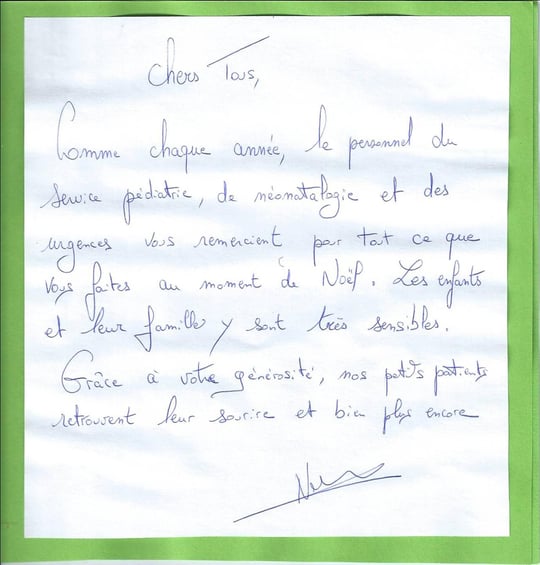 Chers Tous,
Comme chaque année, le personnel du
service pédiatrie, de néonatalogie et des
urgences vous remercient pour tout ce que
vous faites au moment de Noël. Les enfants
et leur famille y sont très sensibles.
Grâce à votre générosité, nos petits patients
retrouvent leur sourire et bien plus encore